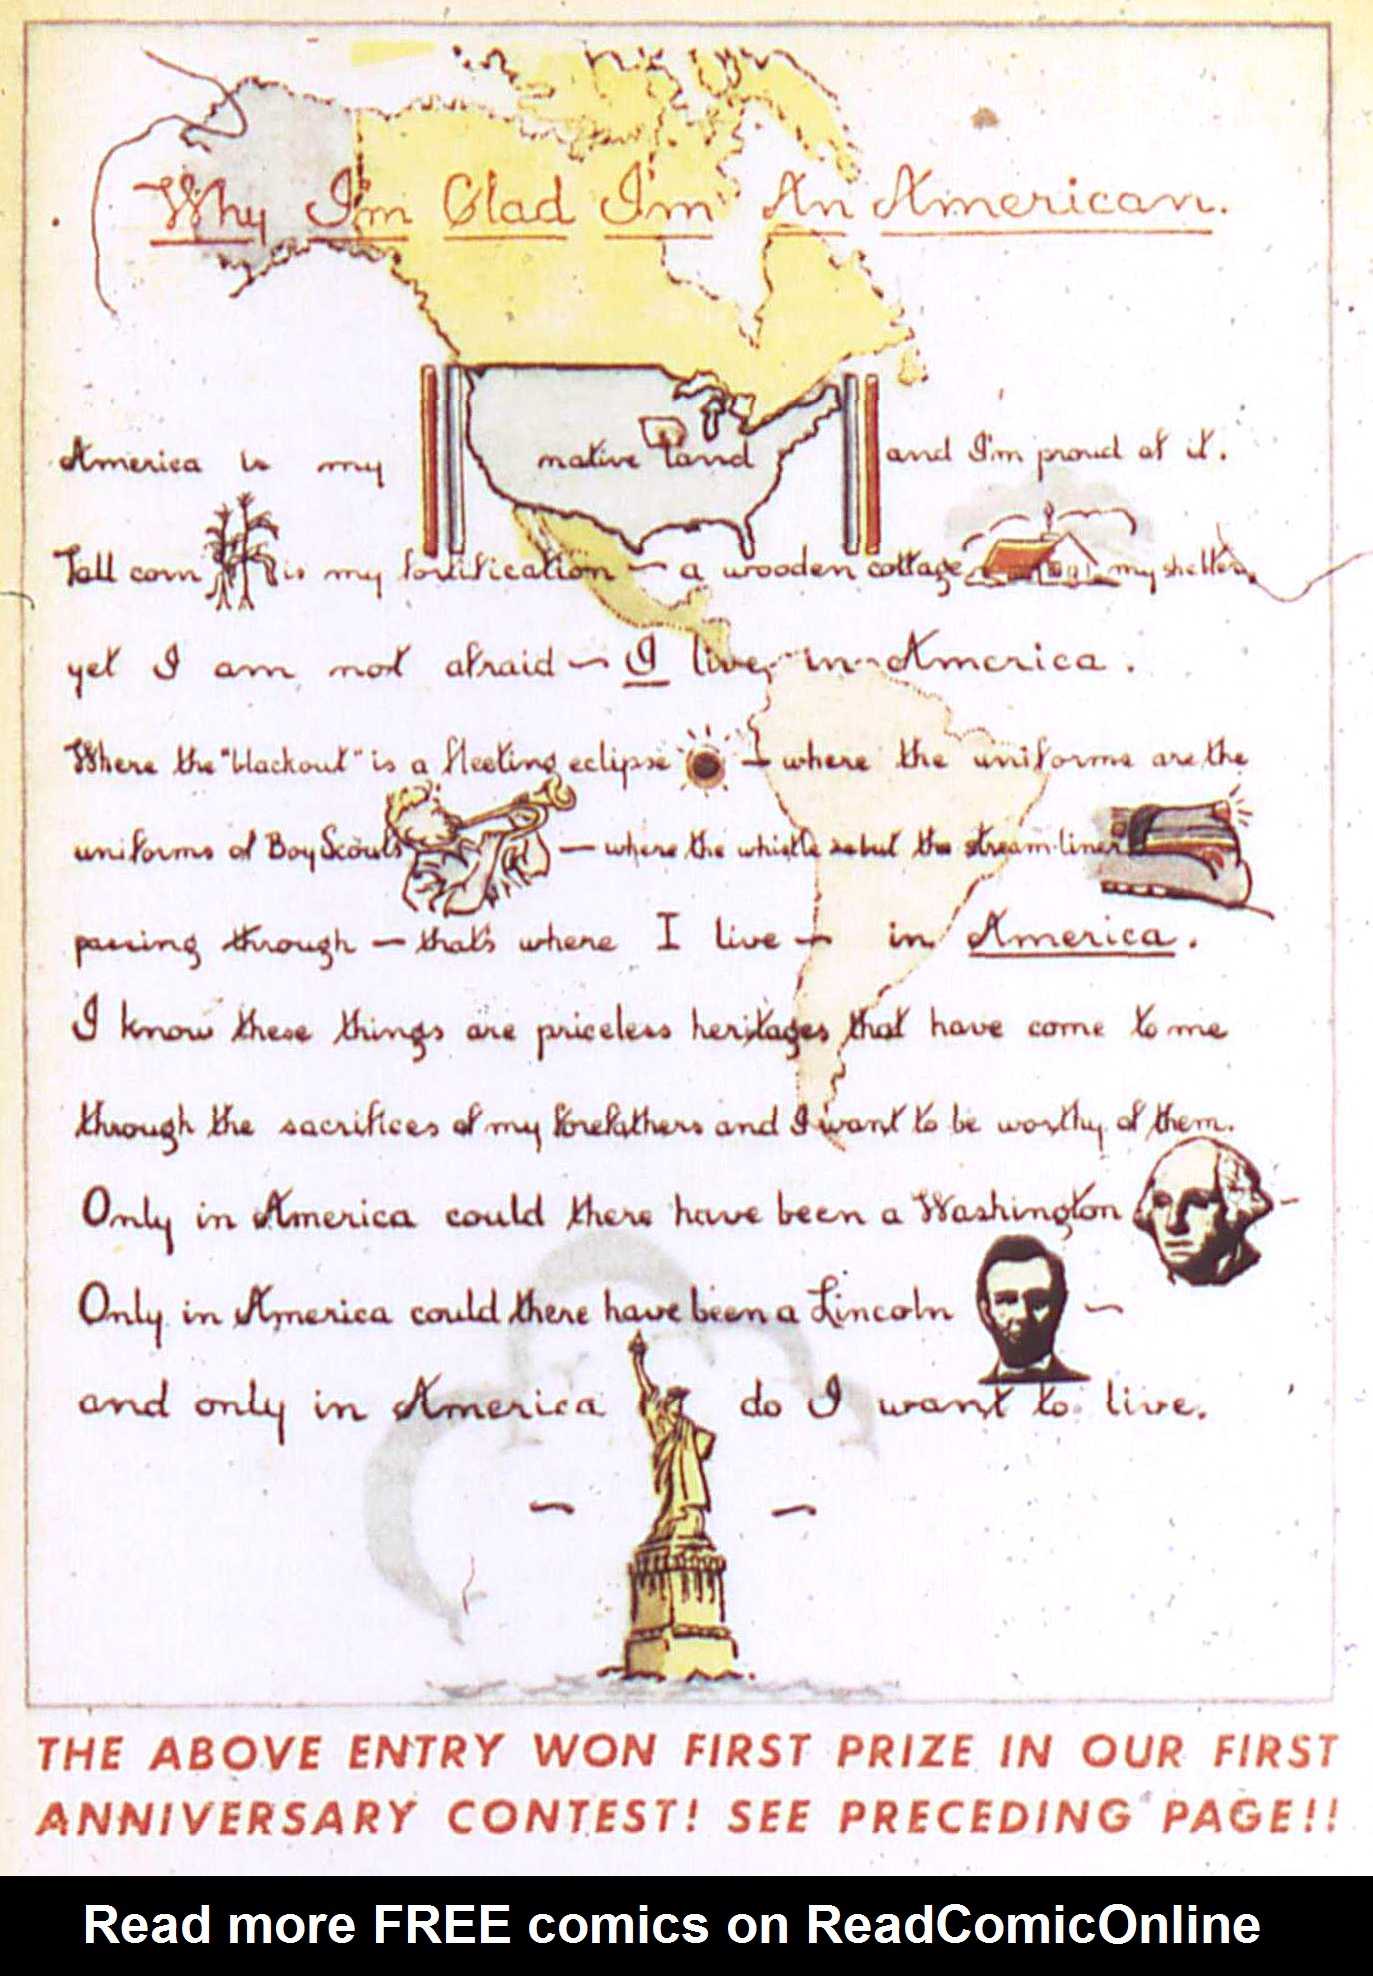 Why I'm Glad I'm An American.
America is my native land and I'm proud of it.
Tall corn is my fortification - a wooden cottage my shelter,
yet I am not afraid - I live in America.
Where the "blackout" is a fleeting eclipse - where the uniforms are the
uniforms of Boy Scouts - where the whistle is but the stream-liner
passing through - that's where I live - in America.
I know these things are priceless heritages that have come to me
through the sacrifices of my forefathers and I want to be worthy of them.
Only in America could there have been a Washington -
Only in America could there have been a Lincoln -
and only in America do I want to live.
THE ABOVE ENTRY WON FIRST PRIZE IN OUR FIRST
ANNIVERSARY CONTEST! SEE PRECEDING PAGE!!
Read more FREE comics on ReadComicOnline